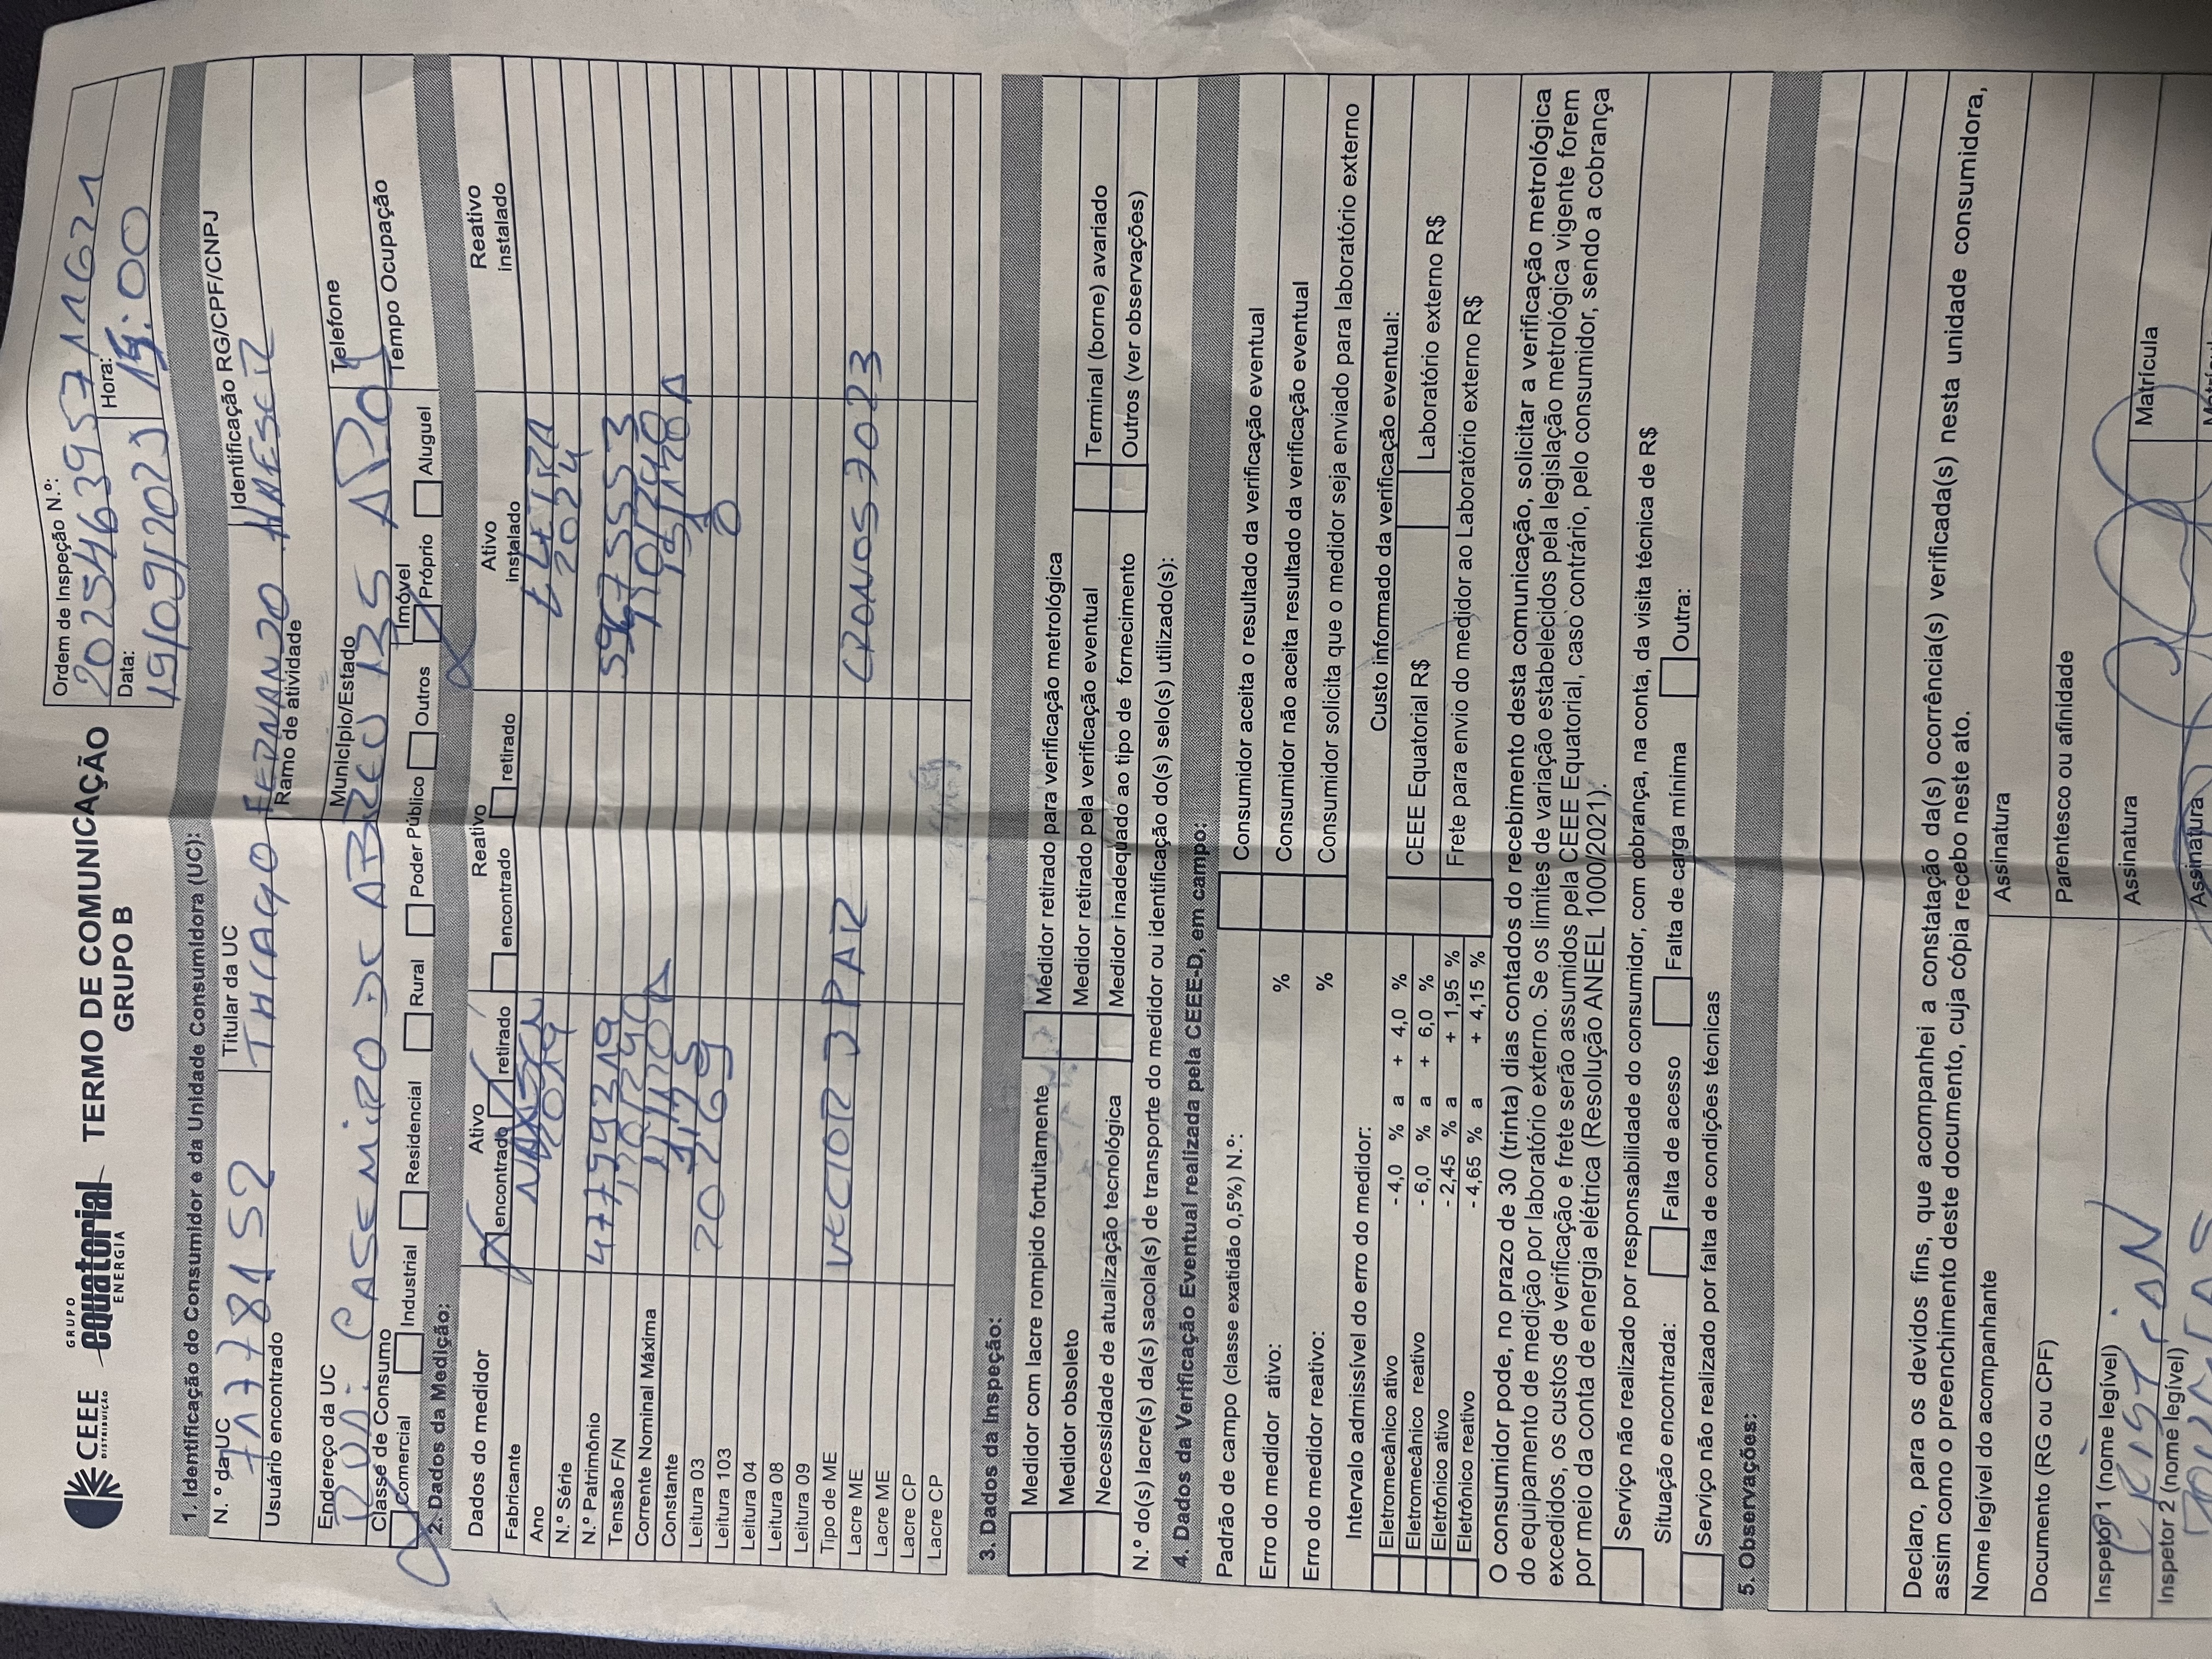 CEEE
DISTRIBUIÇÃO
GRUPO
equatorial
ENERGIA
TERMO DE COMUNICAÇÃO
GRUPO B
Ordem de Inspeção N.º:
2025463957 11621
Data: Hora:
19/09/2025 15:00
1. Identificação do Consumidor e da Unidade Consumidora (UC):
N. º da UC Titular da UC Identificação RG/CPF/CNPJ
71778152 THIAGO FERNANDO
Usuário encontrado Ramo de atividade
Endereço da UC Município/Estado Telefone
RUA: CASEMIRO DE ABREU 135
Classe de Consumo Imóvel Tempo Ocupação
Comercial Industrial Residencial Rural Poder Público Outros Próprio Aluguel
2. Dados da Medição:
Dados do medidor Ativo Reativo Ativo instalado Reativo instalado
encontrado retirado encontrado retirado
Fabricante NANSEN ELETRA
Ano 2014 2024
N.º Série
N.º Patrimônio
Tensão F/N
Corrente Nominal Máxima
Constante
Leitura 03 20269 0
Leitura 103
Leitura 04
Leitura 08
Leitura 09
Tipo de ME VECTOR 3 PAR CRONOS 7023
Lacre ME
Lacre ME
Lacre CP
Lacre CP
3. Dados da Inspeção:
Medidor com lacre rompido fortuitamente Medidor retirado para verificação metrológica
Medidor obsoleto Medidor retirado pela verificação eventual Terminal (borne) avariado
Necessidade de atualização tecnológica Medidor inadequado ao tipo de fornecimento Outros (ver observações)
N.º do(s) lacre(s) da(s) sacola(s) de transporte do medidor ou identificação do(s) selo(s) utilizado(s):
4. Dados da Verificação Eventual realizada pela CEEE-D, em campo:
Padrão de campo (classe exatidão 0,5%) N.º: Consumidor aceita o resultado da verificação eventual
Erro do medidor ativo: % Consumidor não aceita resultado da verificação eventual
Erro do medidor reativo: % Consumidor solicita que o medidor seja enviado para laboratório externo
Intervalo admissível do erro do medidor: Custo informado da verificação eventual:
Eletromecânico ativo - 4,0 % a + 4,0 % CEEE Equatorial R$ Laboratório externo R$
Eletromecânico reativo - 6,0 % a + 6,0 %
Eletrônico ativo - 2,45 % a + 1,95 % Frete para envio do medidor ao Laboratório externo R$
Eletrônico reativo - 4,65 % a + 4,15 %
O consumidor pode, no prazo de 30 (trinta) dias contados do recebimento desta comunicação, solicitar a verificação metrológica
do equipamento de medição por laboratório externo. Se os limites de variação estabelecidos pela legislação metrológica vigente forem
excedidos, os custos de verificação e frete serão assumidos pela CEEE Equatorial, caso contrário, pelo consumidor, sendo a cobrança
por meio da conta de energia elétrica (Resolução ANEEL 1000/2021).
Serviço não realizado por responsabilidade do consumidor, com cobrança, na conta, da visita técnica de R$
Situação encontrada: Falta de acesso Falta de carga mínima Outra:
Serviço não realizado por falta de condições técnicas
5. Observações:
Declaro, para os devidos fins, que acompanhei a constatação da(s) ocorrência(s) verificada(s) nesta unidade consumidora,
assim como o preenchimento deste documento, cuja cópia recebo neste ato.
Nome legível do acompanhante Assinatura
Documento (RG ou CPF) Parentesco ou afinidade
Inspetor 1 (nome legível) Assinatura Matrícula
Inspetor 2 (nome legível) Assinatura